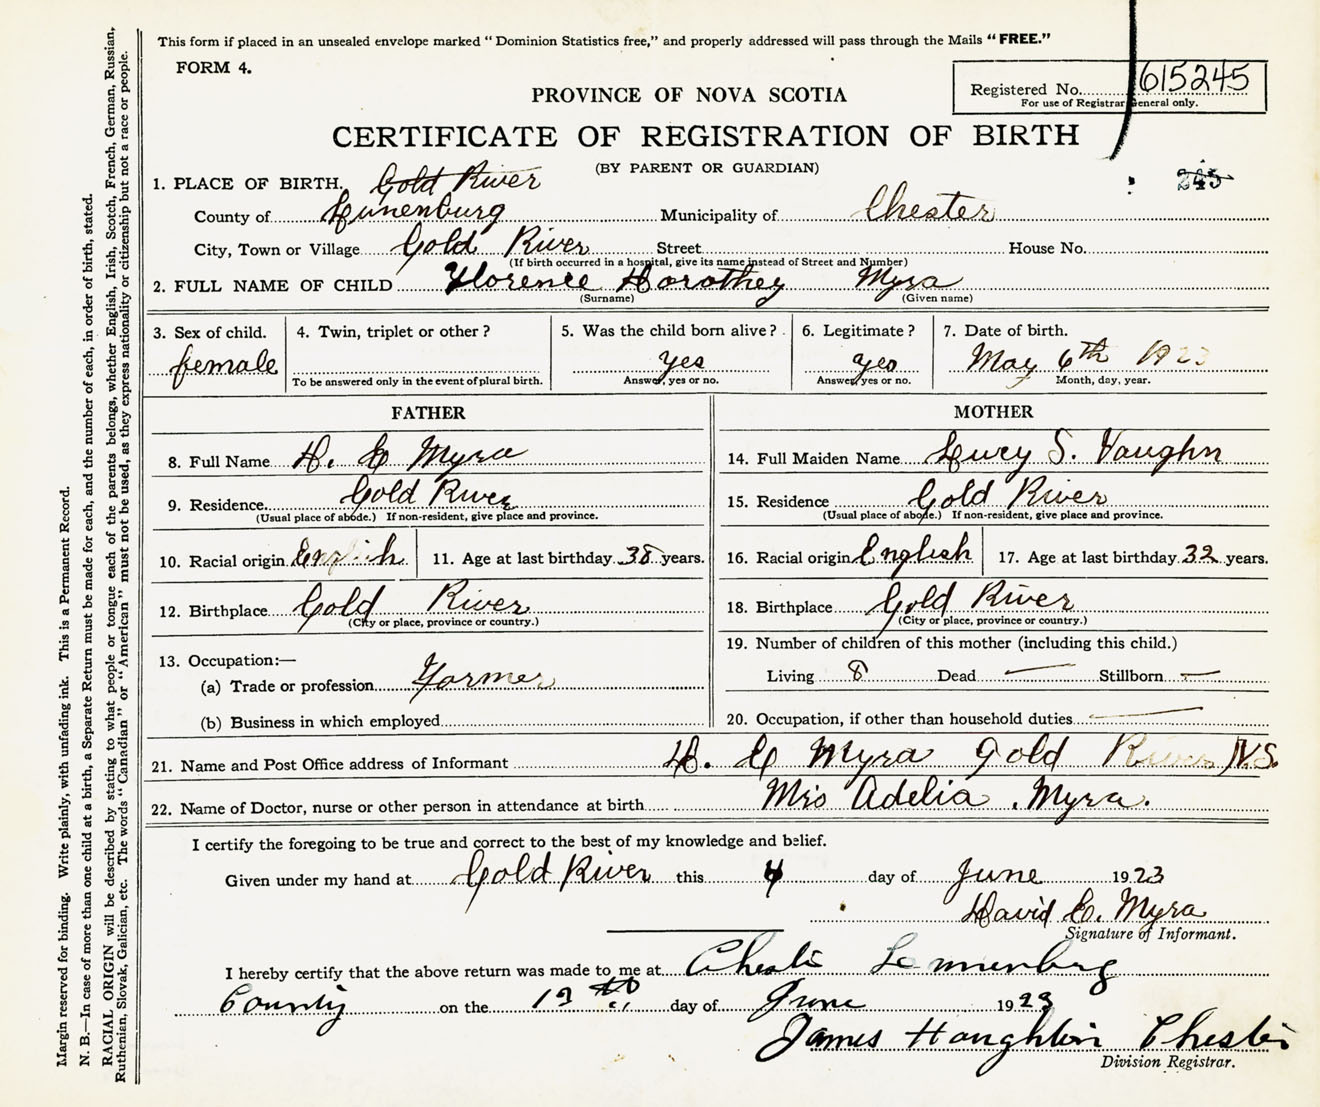 This form if placed in an unsealed envelope marked "Dominion Statistics free," and properly addressed will pass through the Mails "FREE."
FORM 4.
Registered No. 615245
For use of Registrar General only.
PROVINCE OF NOVA SCOTIA
CERTIFICATE OF REGISTRATION OF BIRTH
(BY PARENT OR GUARDIAN)
245
1. PLACE OF BIRTH. Gold River
County of Lunenburg Municipality of Chester
City, Town or Village Gold River Street House No.
(If birth occurred in a hospital, give its name instead of Street and Number)
2. FULL NAME OF CHILD Florence Dorothey Myra
(Surname) (Given name)
3. Sex of child. 4. Twin, triplet or other? 5. Was the child born alive? 6. Legitimate? 7. Date of birth.
female yes yes May 6th 1923
To be answered only in the event of plural birth. Answer, yes or no. Answer, yes or no. Month, day, year.
FATHER MOTHER
8. Full Name D. C Myra 14. Full Maiden Name Lucy S. Vaughn
9. Residence Gold River 15. Residence Gold River
(Usual place of abode.) If non-resident, give place and province. (Usual place of abode.) If non-resident, give place and province.
10. Racial origin English 11. Age at last birthday 38 years. 16. Racial origin English 17. Age at last birthday 32 years.
12. Birthplace Gold River 18. Birthplace Gold River
(City or place, province or country.) (City or place, province or country.)
19. Number of children of this mother (including this child.)
13. Occupation:—
(a) Trade or profession Farmer Living 8 Dead — Stillborn —
(b) Business in which employed 20. Occupation, if other than household duties —
21. Name and Post Office address of Informant D. C Myra Gold River N.S.
22. Name of Doctor, nurse or other person in attendance at birth Mrs Adelia Myra.
I certify the foregoing to be true and correct to the best of my knowledge and belief.
Given under my hand at Gold River this 4 day of June 1923
David C. Myra
Signature of Informant.
I hereby certify that the above return was made to me at Chester Lunenburg
County on the 12th day of June 1923
James Houghton Chester
Division Registrar.
Margin reserved for binding. Write plainly, with unfading ink. This is a Permanent Record.
N. B.—In case of more than one child at a birth, a Separate Return must be made for each, and the number of each, in order of birth, stated.
RACIAL ORIGIN will be described by stating to what people or tongue each of the parents belongs, whether English, Irish, Scotch, French, German, Russian,
Ruthenian, Slovak, Galician, etc. The words "Canadian" or "American" must not be used, as they express nationality or citizenship but not a race or people.